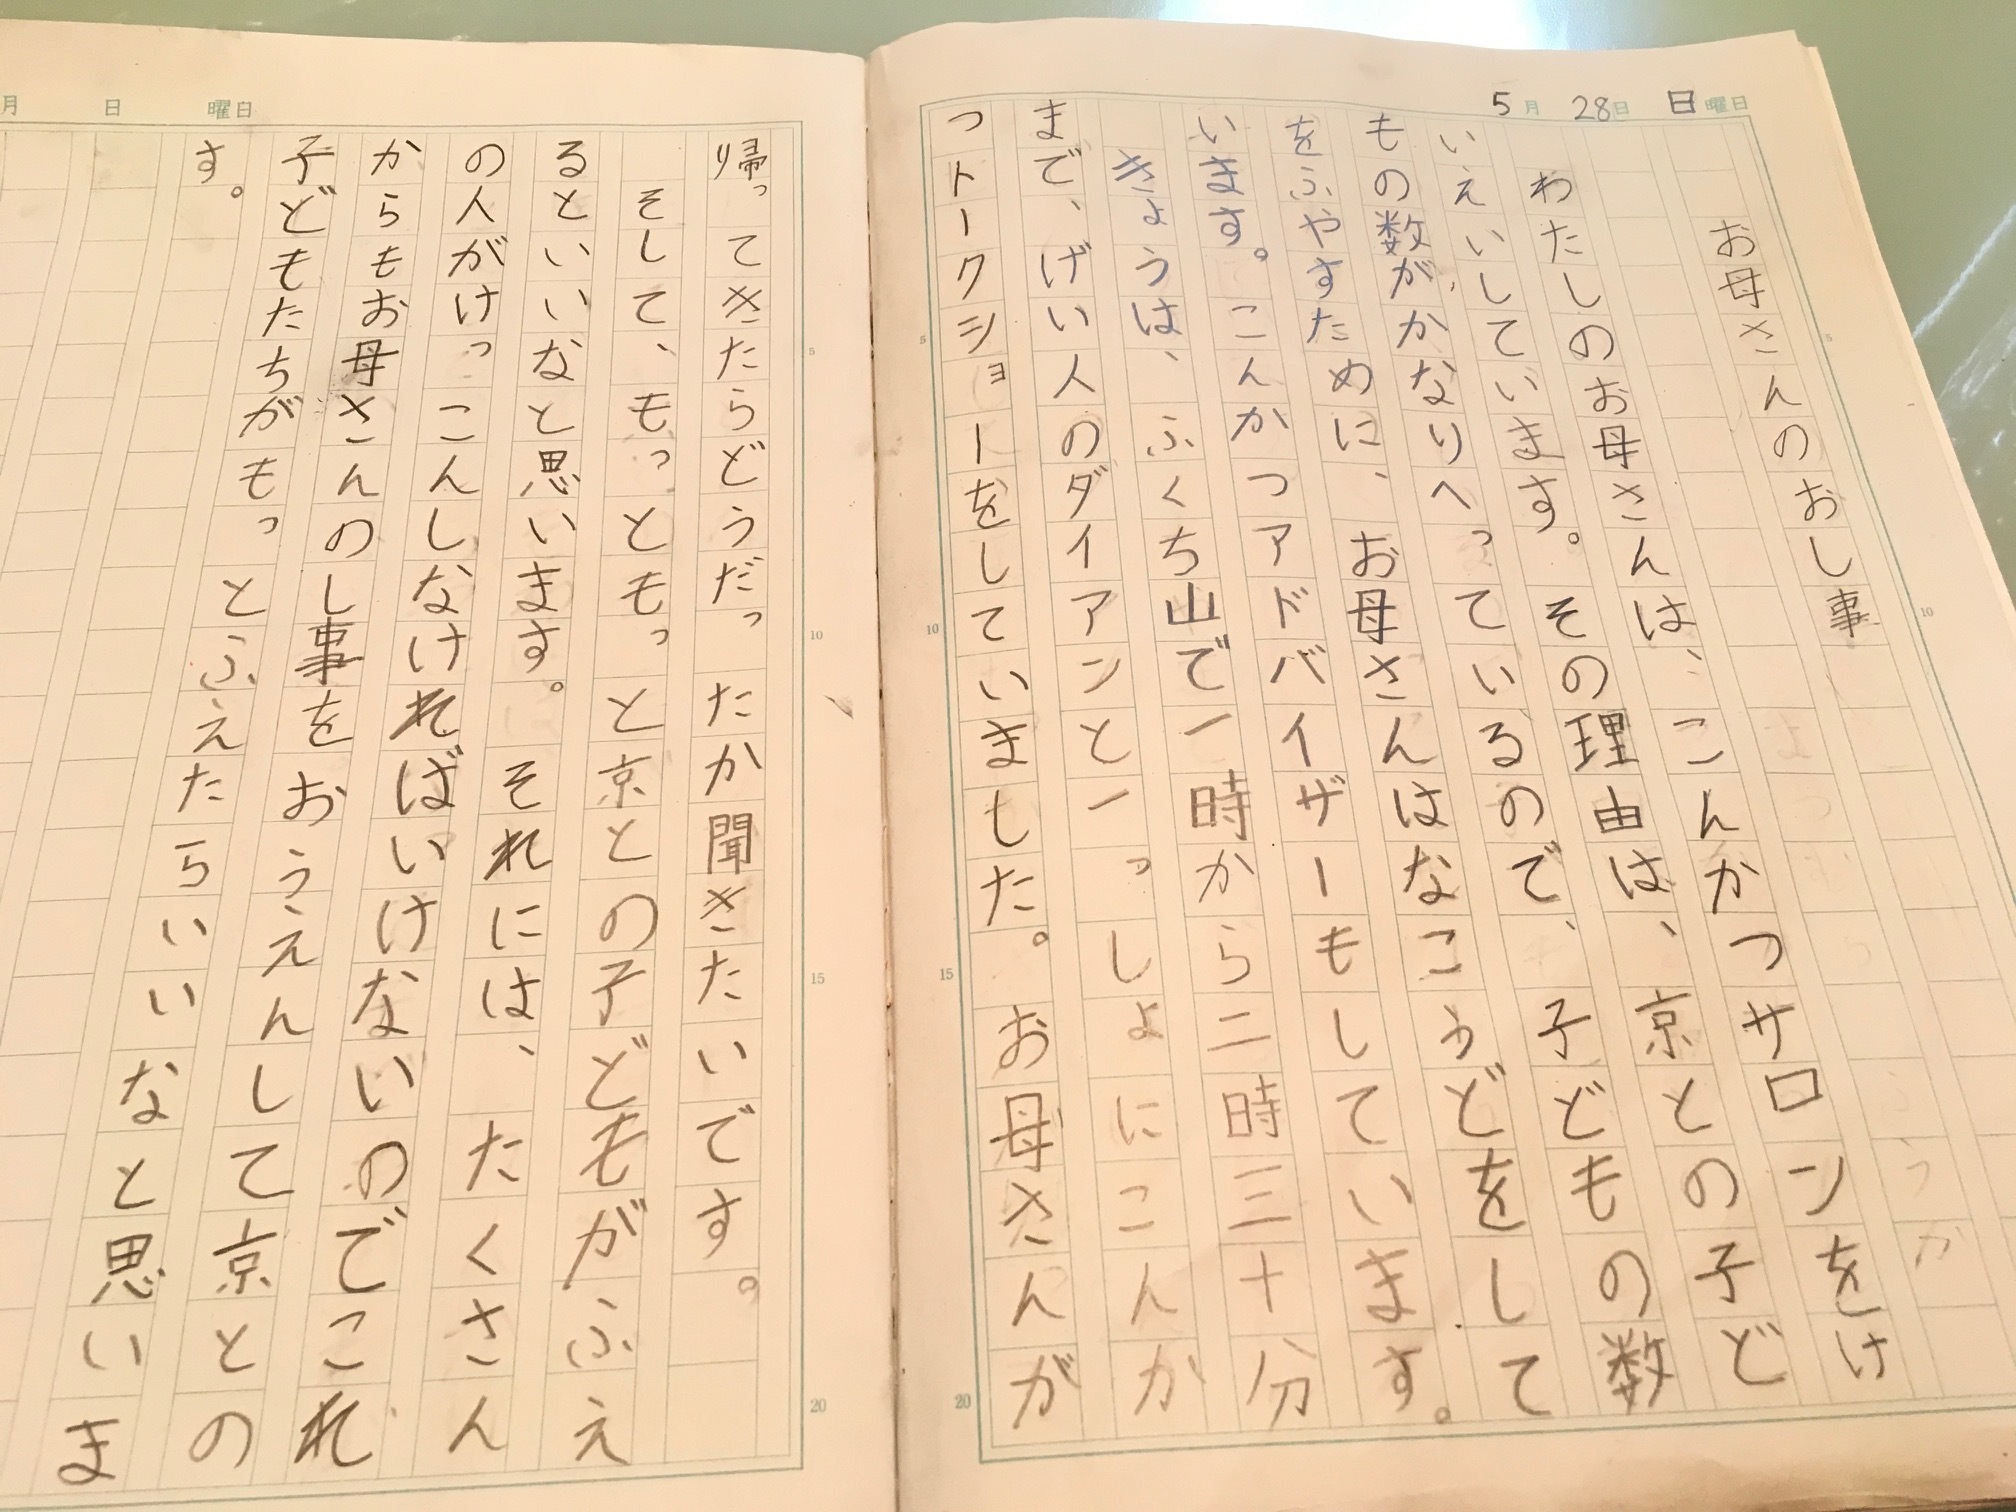 5月28日日曜日
お母さんのおし事
わたしのお母さんは、こんかつサロンをけ
いえいしています。その理由は、京との子ど
もの数がかなりへっているので、子どもの数
をふやすために、お母さんはなこうどをして
います。こんかつアドバイザーもしています。
きょうは、ふくち山で一時から二時三十分
まで、げい人のダイアンと一っしょにこんか
つトークショーをしていました。お母さんが
月 日 曜日
帰ってきたらどうだったか聞きたいです。
そして、もっともっと京との子どもがふえ
るといいなと思います。それには、たくさん
の人がけっこんしなければいけないのでこれ
からもお母さんのし事をおうえんして京との
子どもたちがもっとふえたらいいなと思いま
す。
5
10
15
20
5
10
15
20
5
10